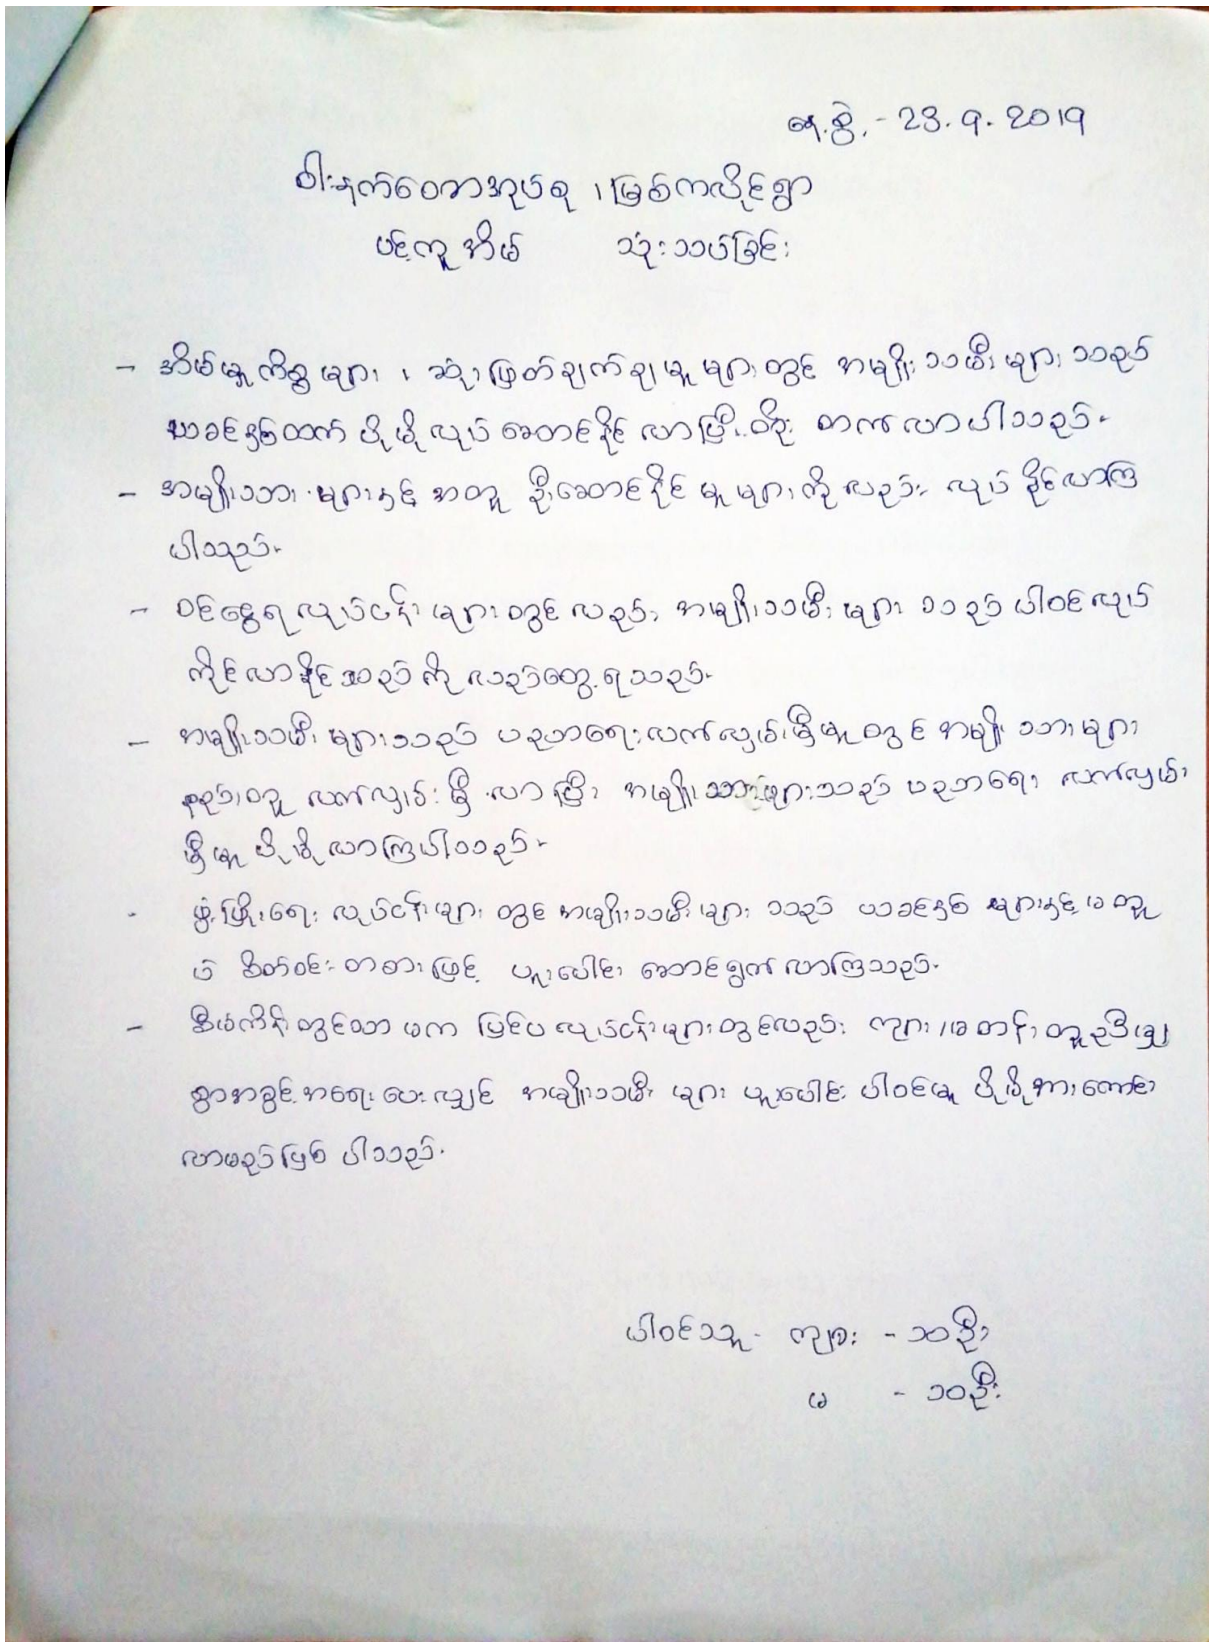 နေ့စွဲ - 23.9.2019
ဝါးနက်ဝေတာအုပ်စု ၊ မြစ်ကလိုင်ရွာ
ပင့်ကူအိမ် သုံးသပ်ခြင်း
- အိမ်မှုကိစ္စများ ၊ ဆုံးဖြတ်ချက်ချမှုများတွင် အမျိုးသမီးများသည်
ယခင်နှစ်ထက် ပိုမိုလုပ်ဆောင်နိုင်လာပြီး တက်လာပါသည်။
- အမျိုးသားများနှင့်အတူ ဦးဆောင်နိုင်မှုများကိုလည်း လုပ်နိုင်လာကြ
ပါသည်။
- ဝင်ငွေရလုပ်ငန်းများတွင်လည်း အမျိုးသမီးများသည် ပါဝင်လုပ်
ကိုင်လာနိုင်သည်ကိုလည်တွေ့ရသည်။
- အမျိုးသမီးများသည် ပညာရေးလက်လှမ်းမှီမှုတွင် အမျိုးသားများ
နည်းတူ လက်လှမ်းမှီလာပြီး အမျိုးသားများသည် ပညာရေး လက်လှမ်း
မှီမှု ပိုမိုလာကြပါသည်။
- ဖွံ့ဖြိုးရေး လုပ်ငန်းများတွင် အမျိုးသမီးများသည် ယခင်နှစ်များနှင့်မတူ
ပဲ စိတ်ဝင်တစားဖြင့် ပူးပေါင်းဆောင်ရွက်လာကြသည်။
- စီမံကိန်းတွင်သာမက ပြင်ပလုပ်ငန်းများတွင်လည်း ကျား/မတန်းတူညီမျှ
စွာအခွင့်အရေးပေးလျှင် အမျိုးသမီးများ ပူးပေါင်းပါဝင်မှု ပိုမိုအားကောင်း
လာမည်ဖြစ်ပါသည်။
ပါဝင်သူ - ကျား - ၁၀ဦး
မ - ၁၀ဦး